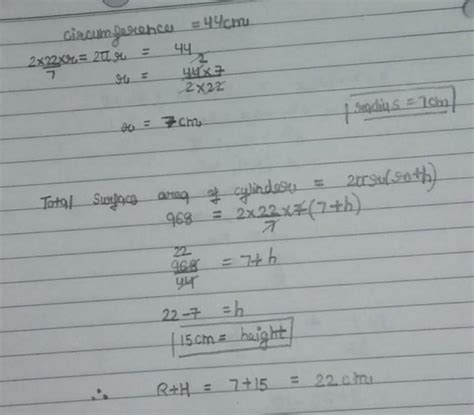 circumference = 44cm
2×22×r/7 = 2πr = 44
r = 44×7/2×22 2
r = 7cm
radius = 7cm
Total surface area of cylinder = 2πr(r+h)
968 = 2×22/7×7(7+h)
22
968/44 = 7+h
22-7 = h
15cm = height
∴ R+H = 7+15 = 22cm